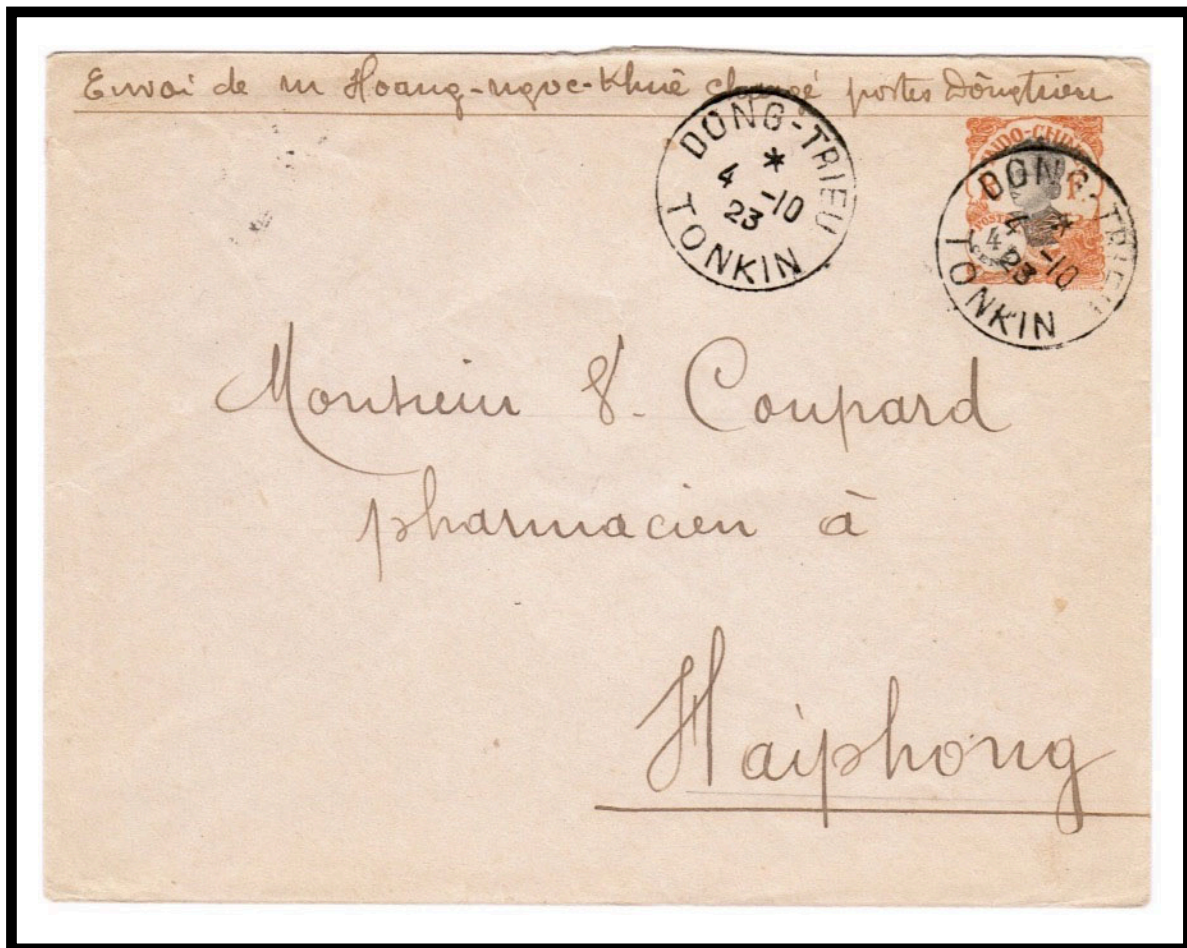 Envoi de m Hoang-ngoc-Khuê chargé postes Dôngtrieu
DONG-TRIEU
*
4 -10
23
TONKIN
INDO-CHINE
POSTES
4
DONG-TRIEU
*
4 -10
23
TONKIN
Monsieur Coupard
pharmacien à
Haiphong